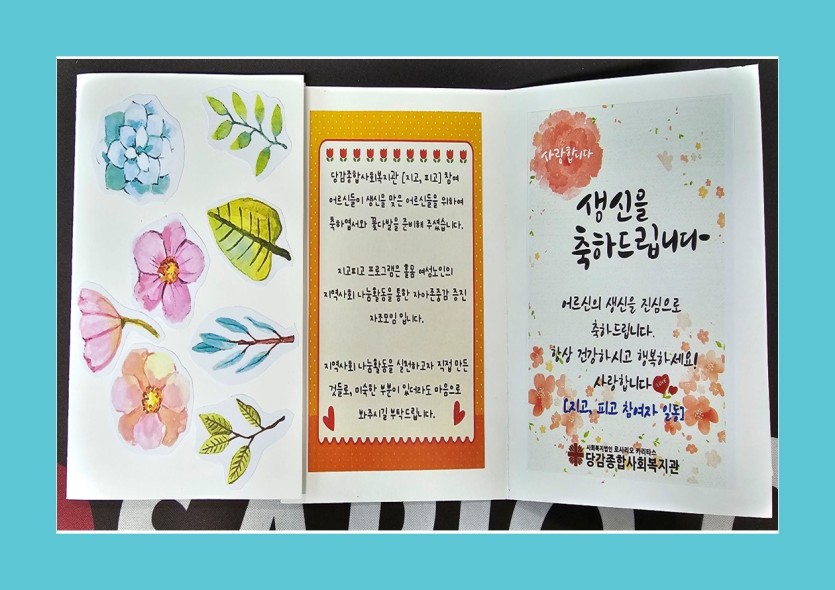 당감종합사회복지관 [지고, 피고] 참여
어르신들이 생신을 맞은 어르신들을 위하여
축하엽서와 꽃다발을 준비해 주셨습니다.
지고피고 프로그램은 홀몸 여성노인의
지역사회 나눔활동을 통한 자아존중감 증진
자조모임 입니다.
지역사회 나눔활동을 실천하고자 직접 만든
것들로, 미숙한 부분이 있더라도 마음으로
봐주시길 부탁드립니다.
사랑합니다
생신을
축하드립니다
어르신의 생신을 진심으로
축하드립니다.
항상 건강하시고 행복하세요!
사랑합니다
Love
[지고, 피고 참여자 일동]
사회복지법인 로사리오 카리타스
당감종합사회복지관